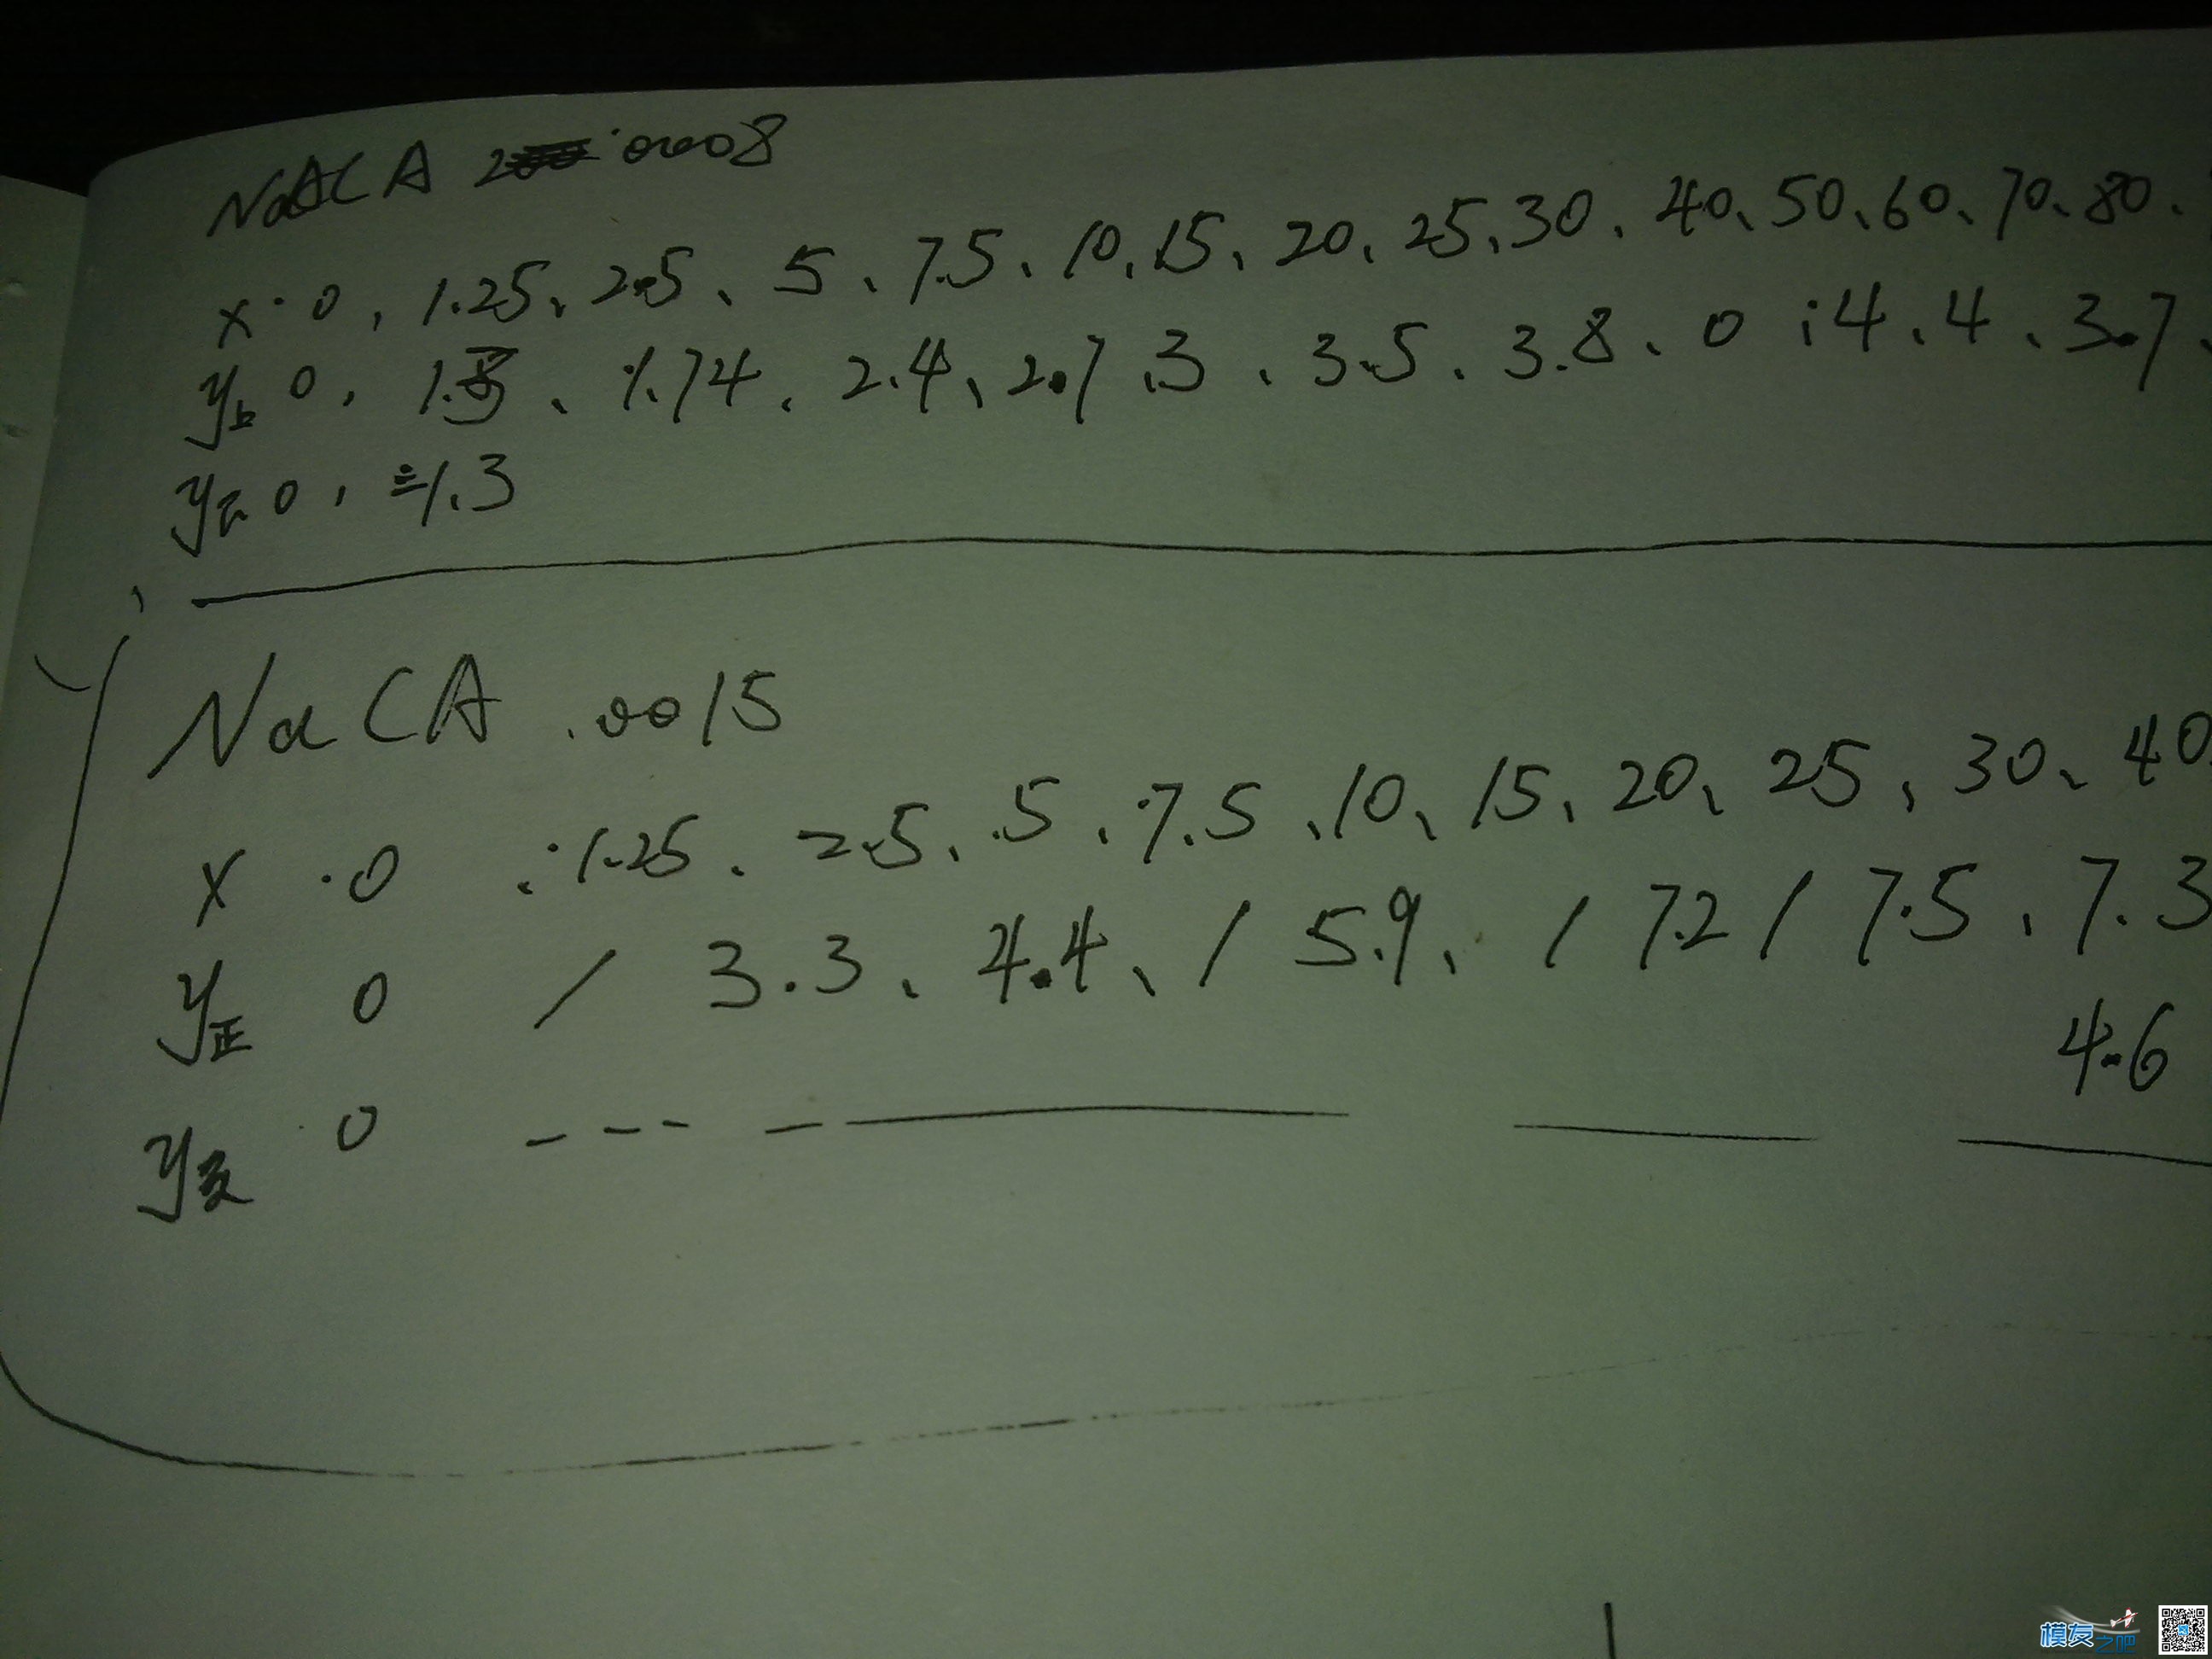 NACA 0008
x 0、1.25、2.5、5、7.5、10、15、20、25、30、40、50、60、70、80、
y上 0、1.、1.74、2.4、2.7、3、3.5、3.8、0、4、4、3.7、
y下 0、1.3
NaCA 0015
x 0、1.25、2.5、5、7.5、10、15、20、25、30、40
y正 0 / 3.3、4.4、/ 5.9、/ 7.2 / 7.5、7.3
4.6
y 0 — — — —
模友之吧